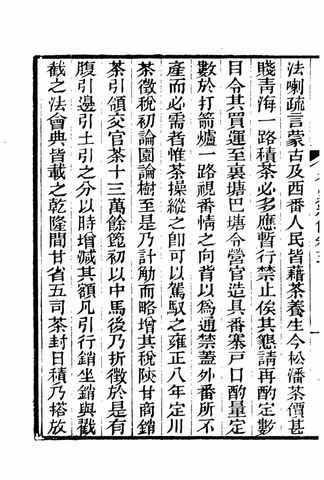 法喇疏言蒙古及西番人民皆藉茶養生今松潘茶價甚
賤青海一路積茶必多應暫行禁止俟其懇請再酌定數
目令其買運至裏塘巴塘令營官造具番寨戸口酌量定
數於打箭爐一路視番情之向背以爲通禁蓋外番所不
產而必需者惟茶操縱之卽可以駕馭之雍正八年定川
茶徵稅初論園論樹至是乃計觔而略增其稅陝甘商銷
茶引領交官茶十三萬餘篦初以中馬後乃折徵於是有
腹引邊引土引之分以時增減其額凡引行銷坐銷與戳
截之法會典皆載之乾隆間甘省五司茶封日積乃搭放